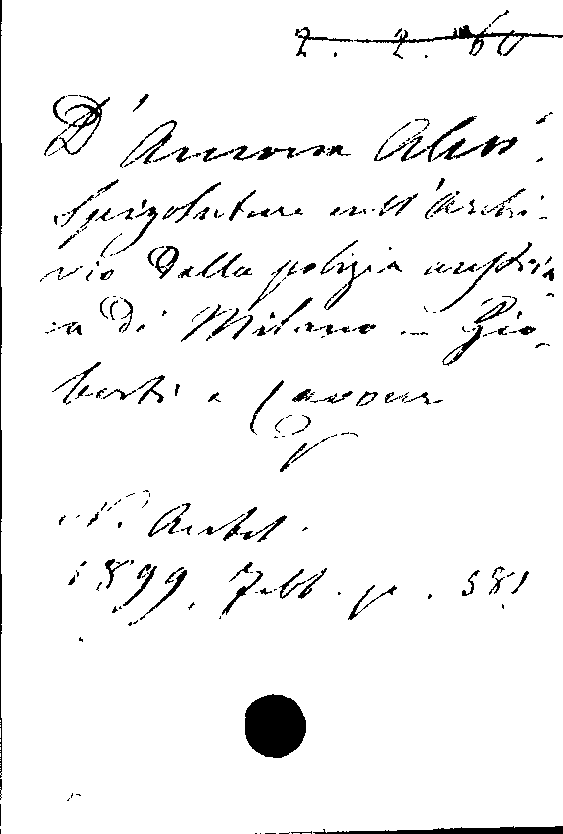 2. 2. 60
D'Ancona Aless.
Spigolature nell'Archi-
vio della polizia austria-
ca di Milano – Gio-
berti e Cavour
N. Antol.
1899, Febb. p. 581